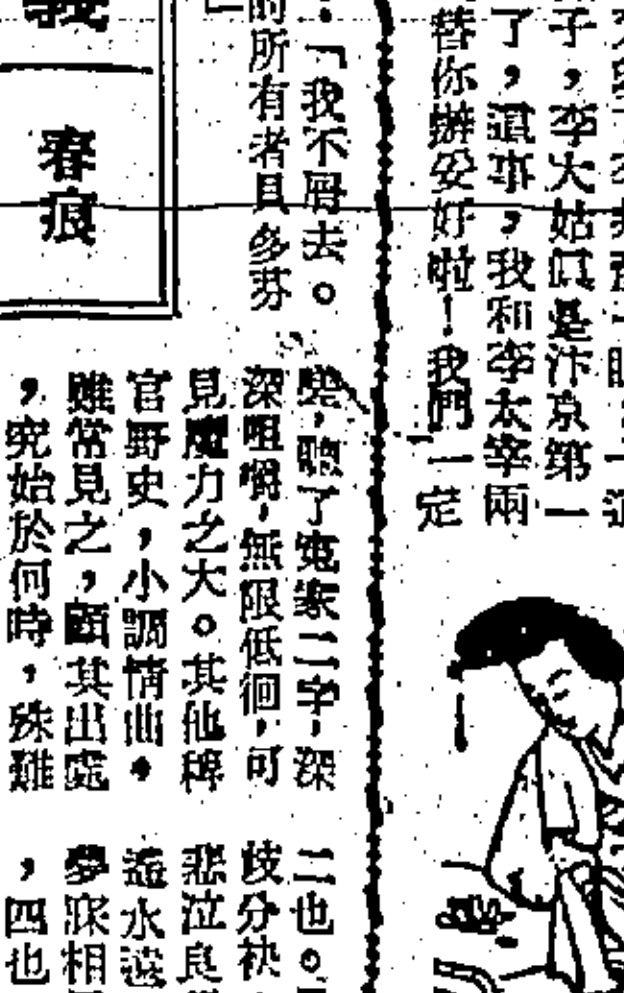 子，李大姑真是汴京第一
了，這事，我和李太宰兩
替你辦妥好啦！我們一定
：「我不屑去。
的所有者具多芬
義
春痕
聽了冤家二字，深
深咀嚼，無限低徊，可
見魔力之大。其他稗
官野史，小調情曲。
雖常見之，顧其出處
，究始於何時，殊難
二也。
歧分袂
悲泣良
遙水遠
夢寐相
，四也